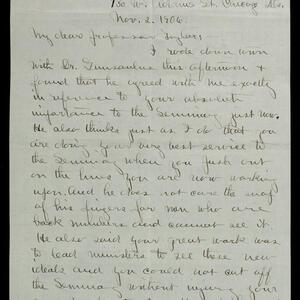 Nov. 2. 1906.
My dear professor Taylor;
I rode down town
with Dr. Gunsaulus this afternoon &
found that he agreed with me exactly
in reference to your absolute
importance to the Seminary just now.
He also thinks just as I do that you
are doing your very best service to
the Seminary when you push out
on the lines you are now working
upon. And he does not care the snap
of his fingers for men who are
back numbers and cannot see it.
He also said your great work was
to lead ministers to see these new
ideals and you could not cut off
the Seminary without injuring your